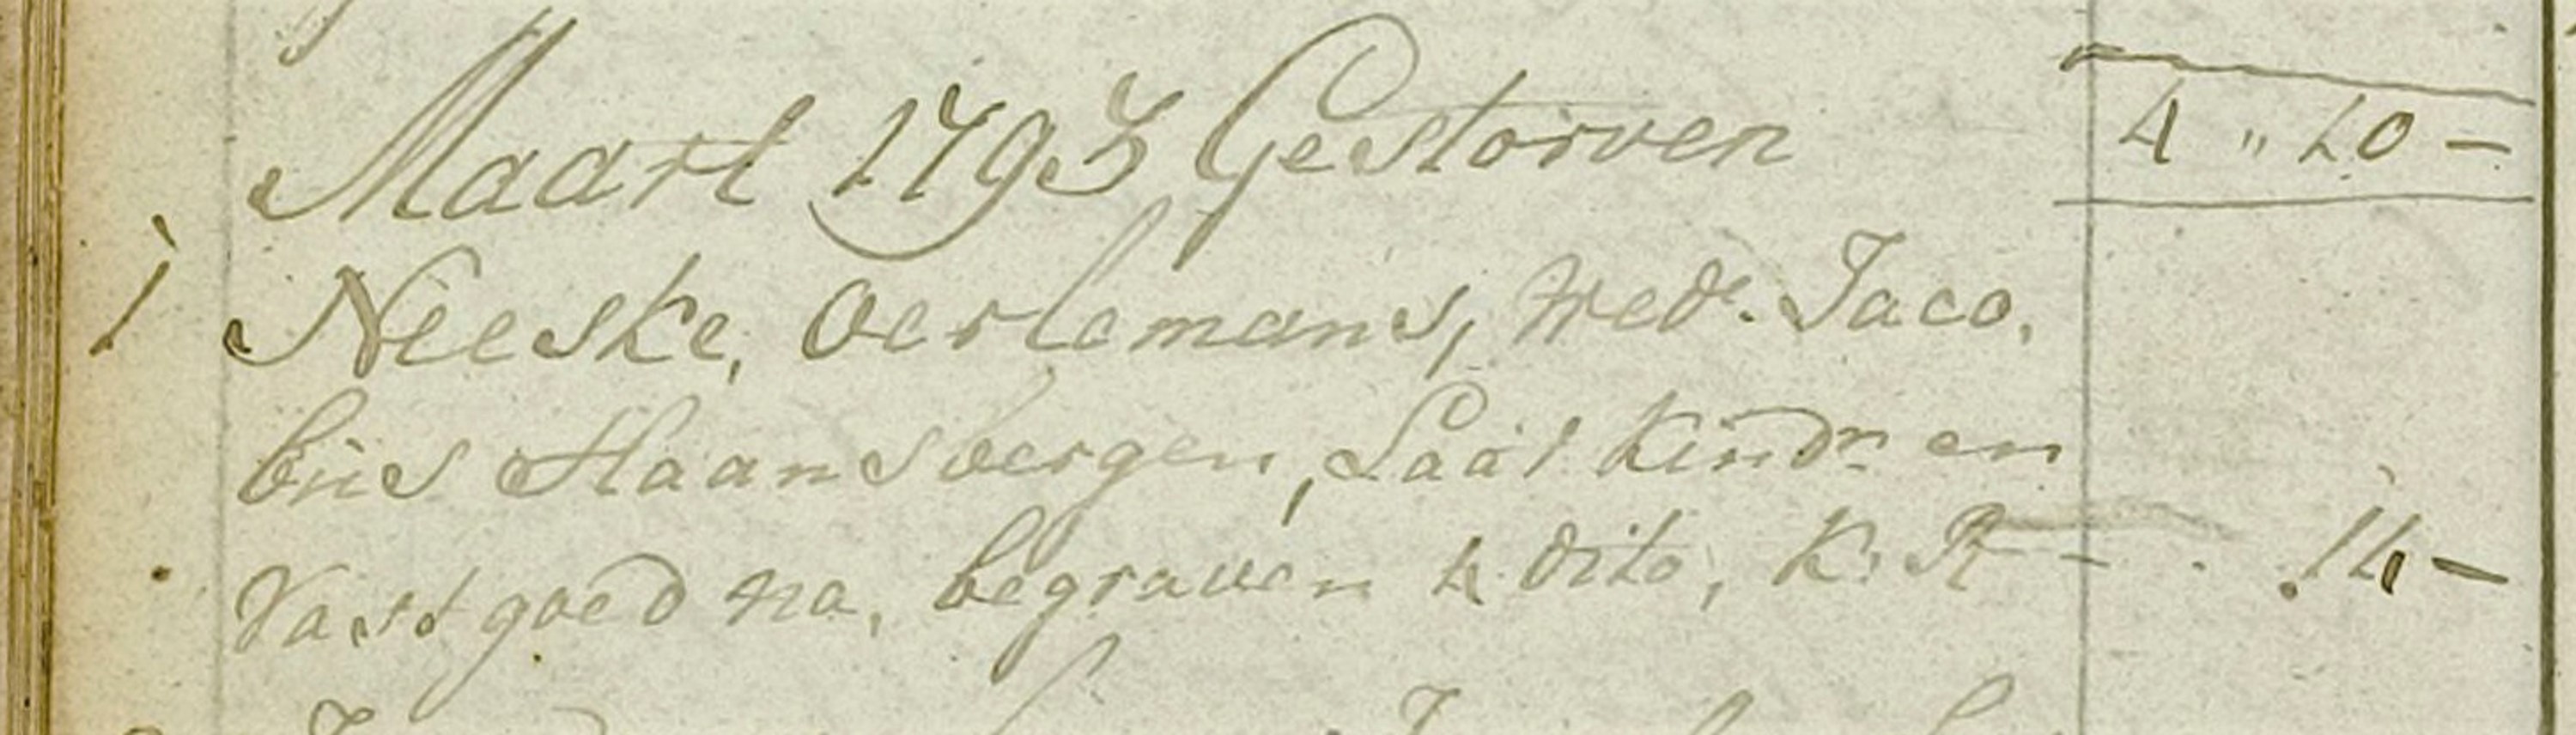 Maart 1793 Gestorven
4 " 10 —
1 Neeske, Oerlemans, wede. Jaco,
bus Haansbergen, Laat kindrn en
Vast goed na, begraven 4 dito, K: R — . 14 —